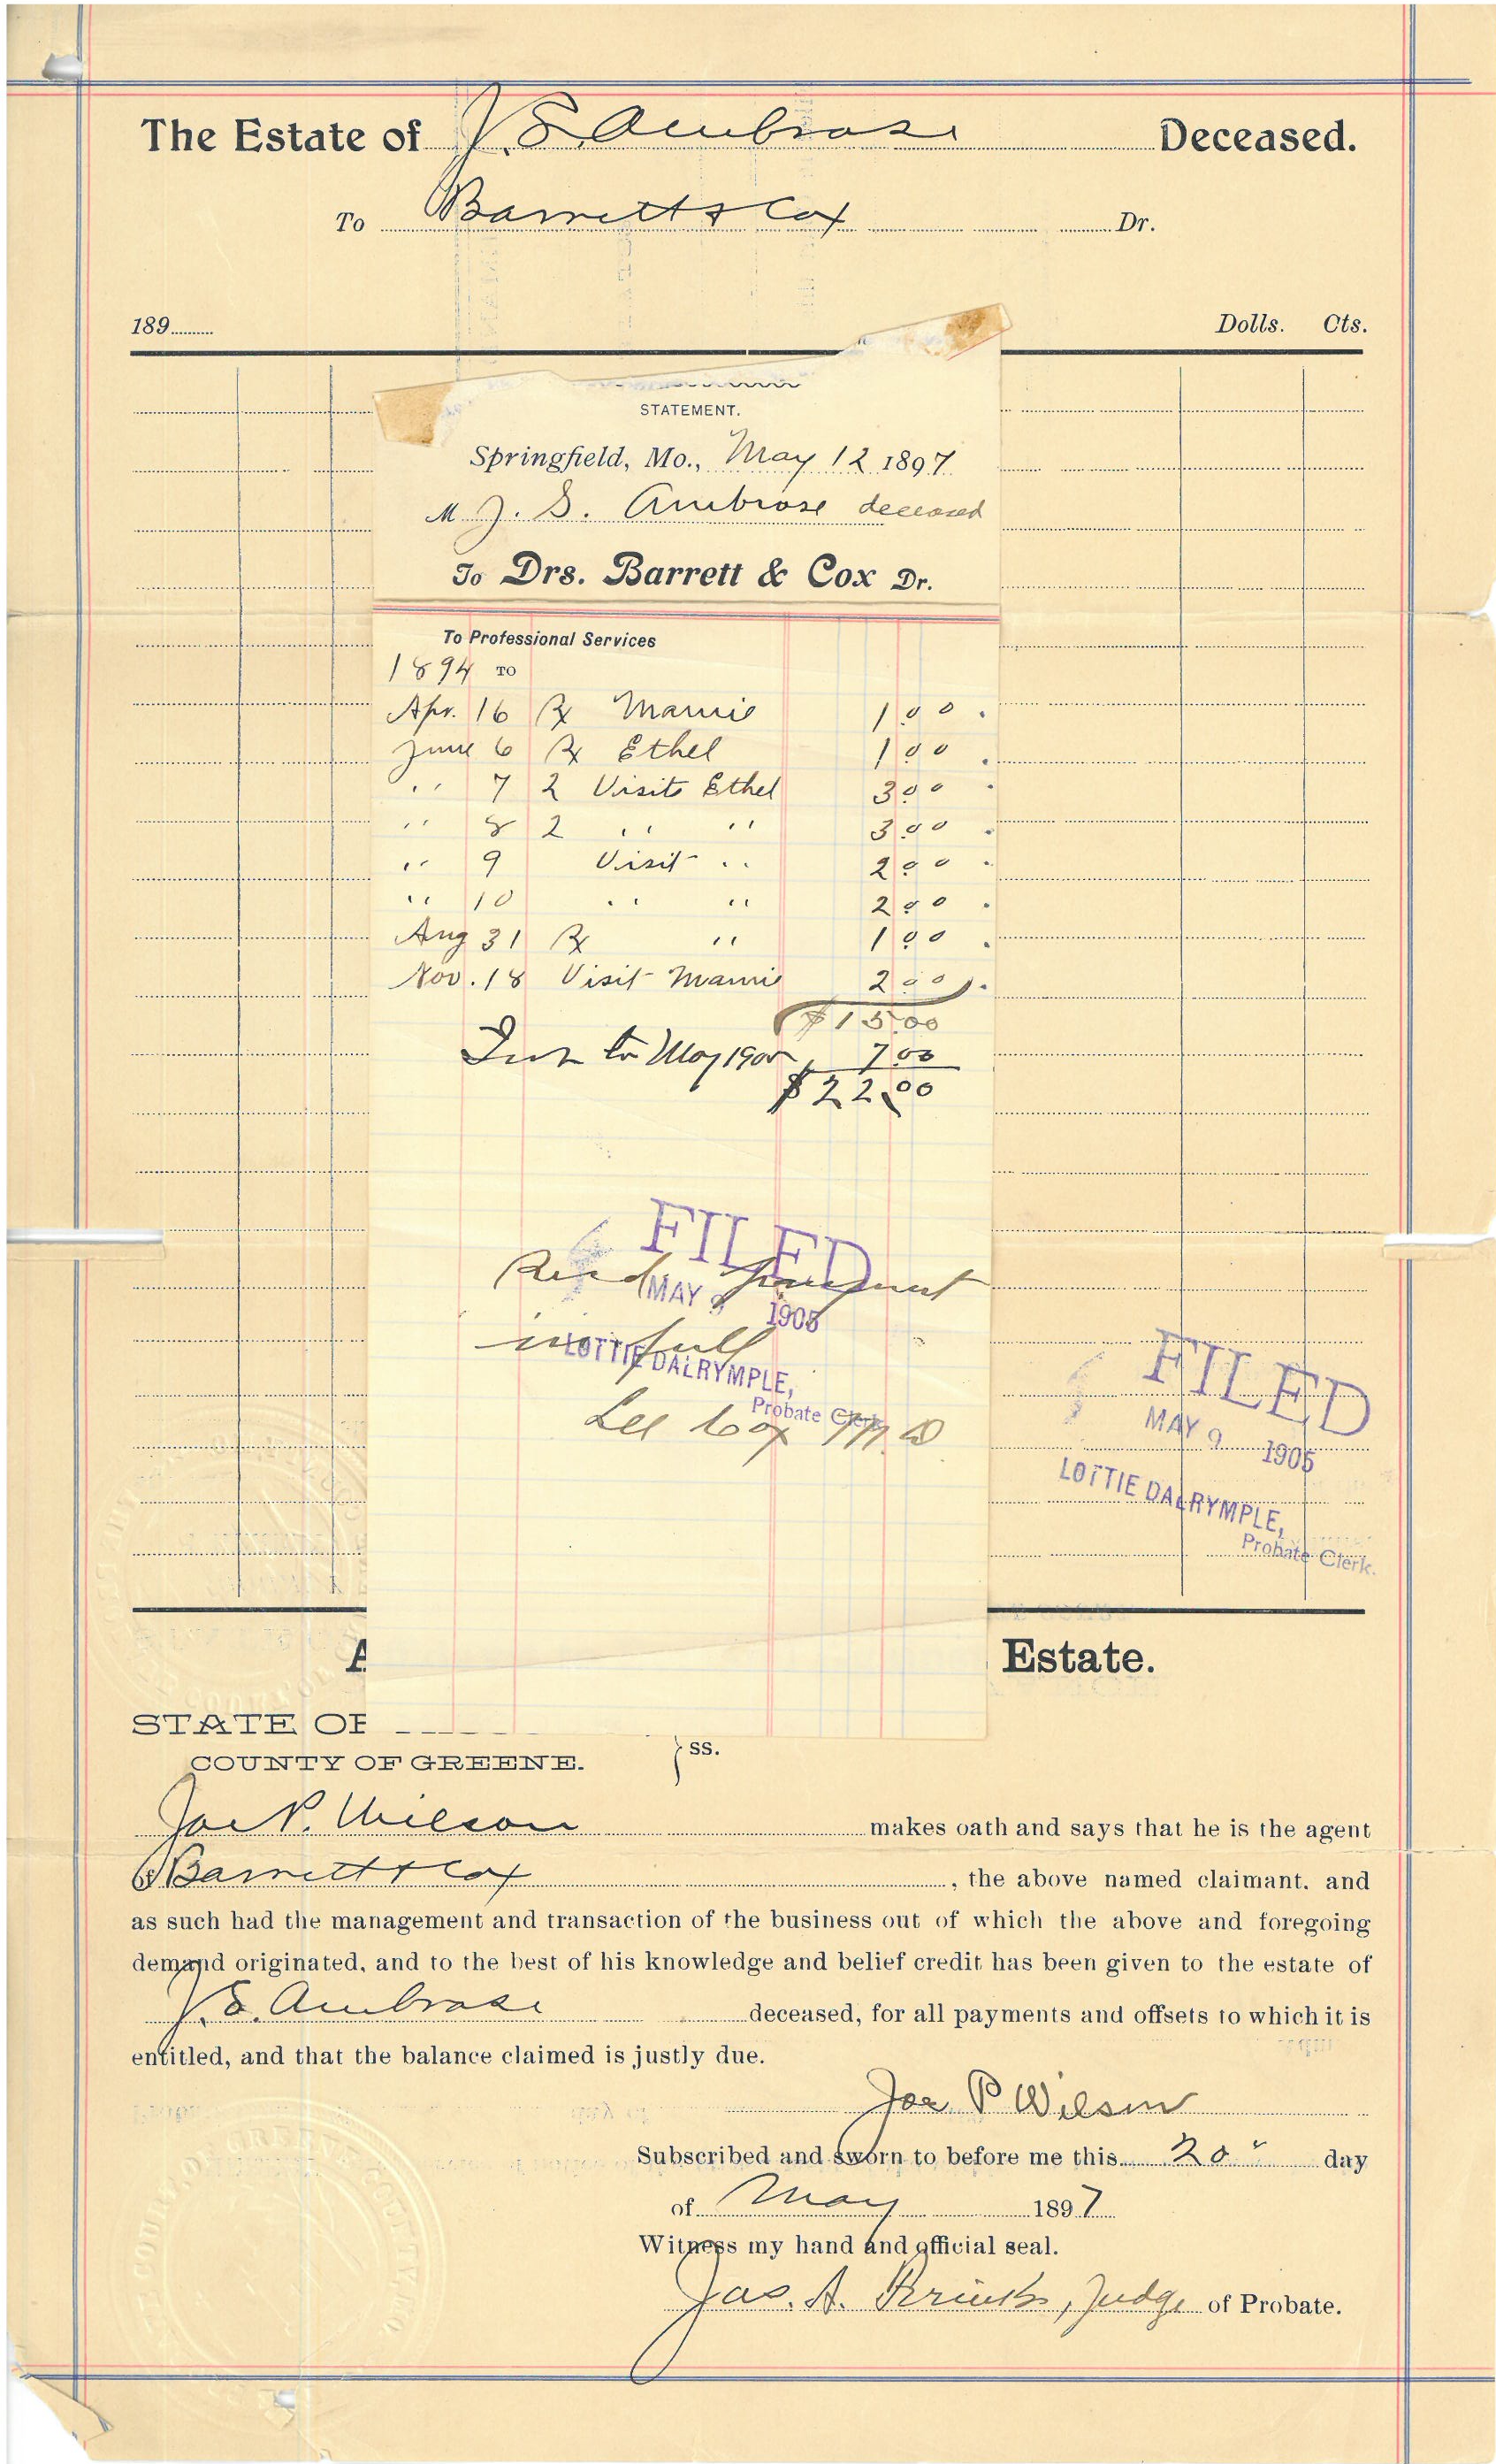 The Estate of J. S. Ambrose Deceased.
To Barrett & Cox Dr.
189 Dolls. Cts.
STATEMENT.
Springfield, Mo., May 12 1897
M J. S. Ambrose deceased
To Drs. Barrett & Cox Dr.
To Professional Services
1894 TO
Apr. 16 ℞ Mamie 1 00
June 6 ℞ Ethel 1 00
" 7 2 Visits Ethel 3 00
" 8 2 " " 3 00
" 9 Visit " 2 00
" 10 " " 2 00
Aug 31 ℞ " 1 00
Nov. 18 Visit Mamie 2 00
$15 00
Int to May 1905 7 00
$22.00
FILED
Recd payment
MAY 9 1905
in full
LOTTIE DALRYMPLE,
Probate Clerk
Lee Cox M.D.
FILED
MAY 9 1905
LOTTIE DALRYMPLE,
Probate Clerk.
A Estate.
STATE OF
COUNTY OF GREENE. } ss.
Joe P. Wilson makes oath and says that he is the agent
of Barrett & Cox, the above named claimant. and
as such had the management and transaction of the business out of which the above and foregoing
demand originated, and to the best of his knowledge and belief credit has been given to the estate of
J. S. Ambrose deceased, for all payments and offsets to which it is
entitled, and that the balance claimed is justly due.
Joe P Wilson
Subscribed and sworn to before me this 20" day
of May 1897
Witness my hand and official seal.
Jas. A. Judge of Probate.